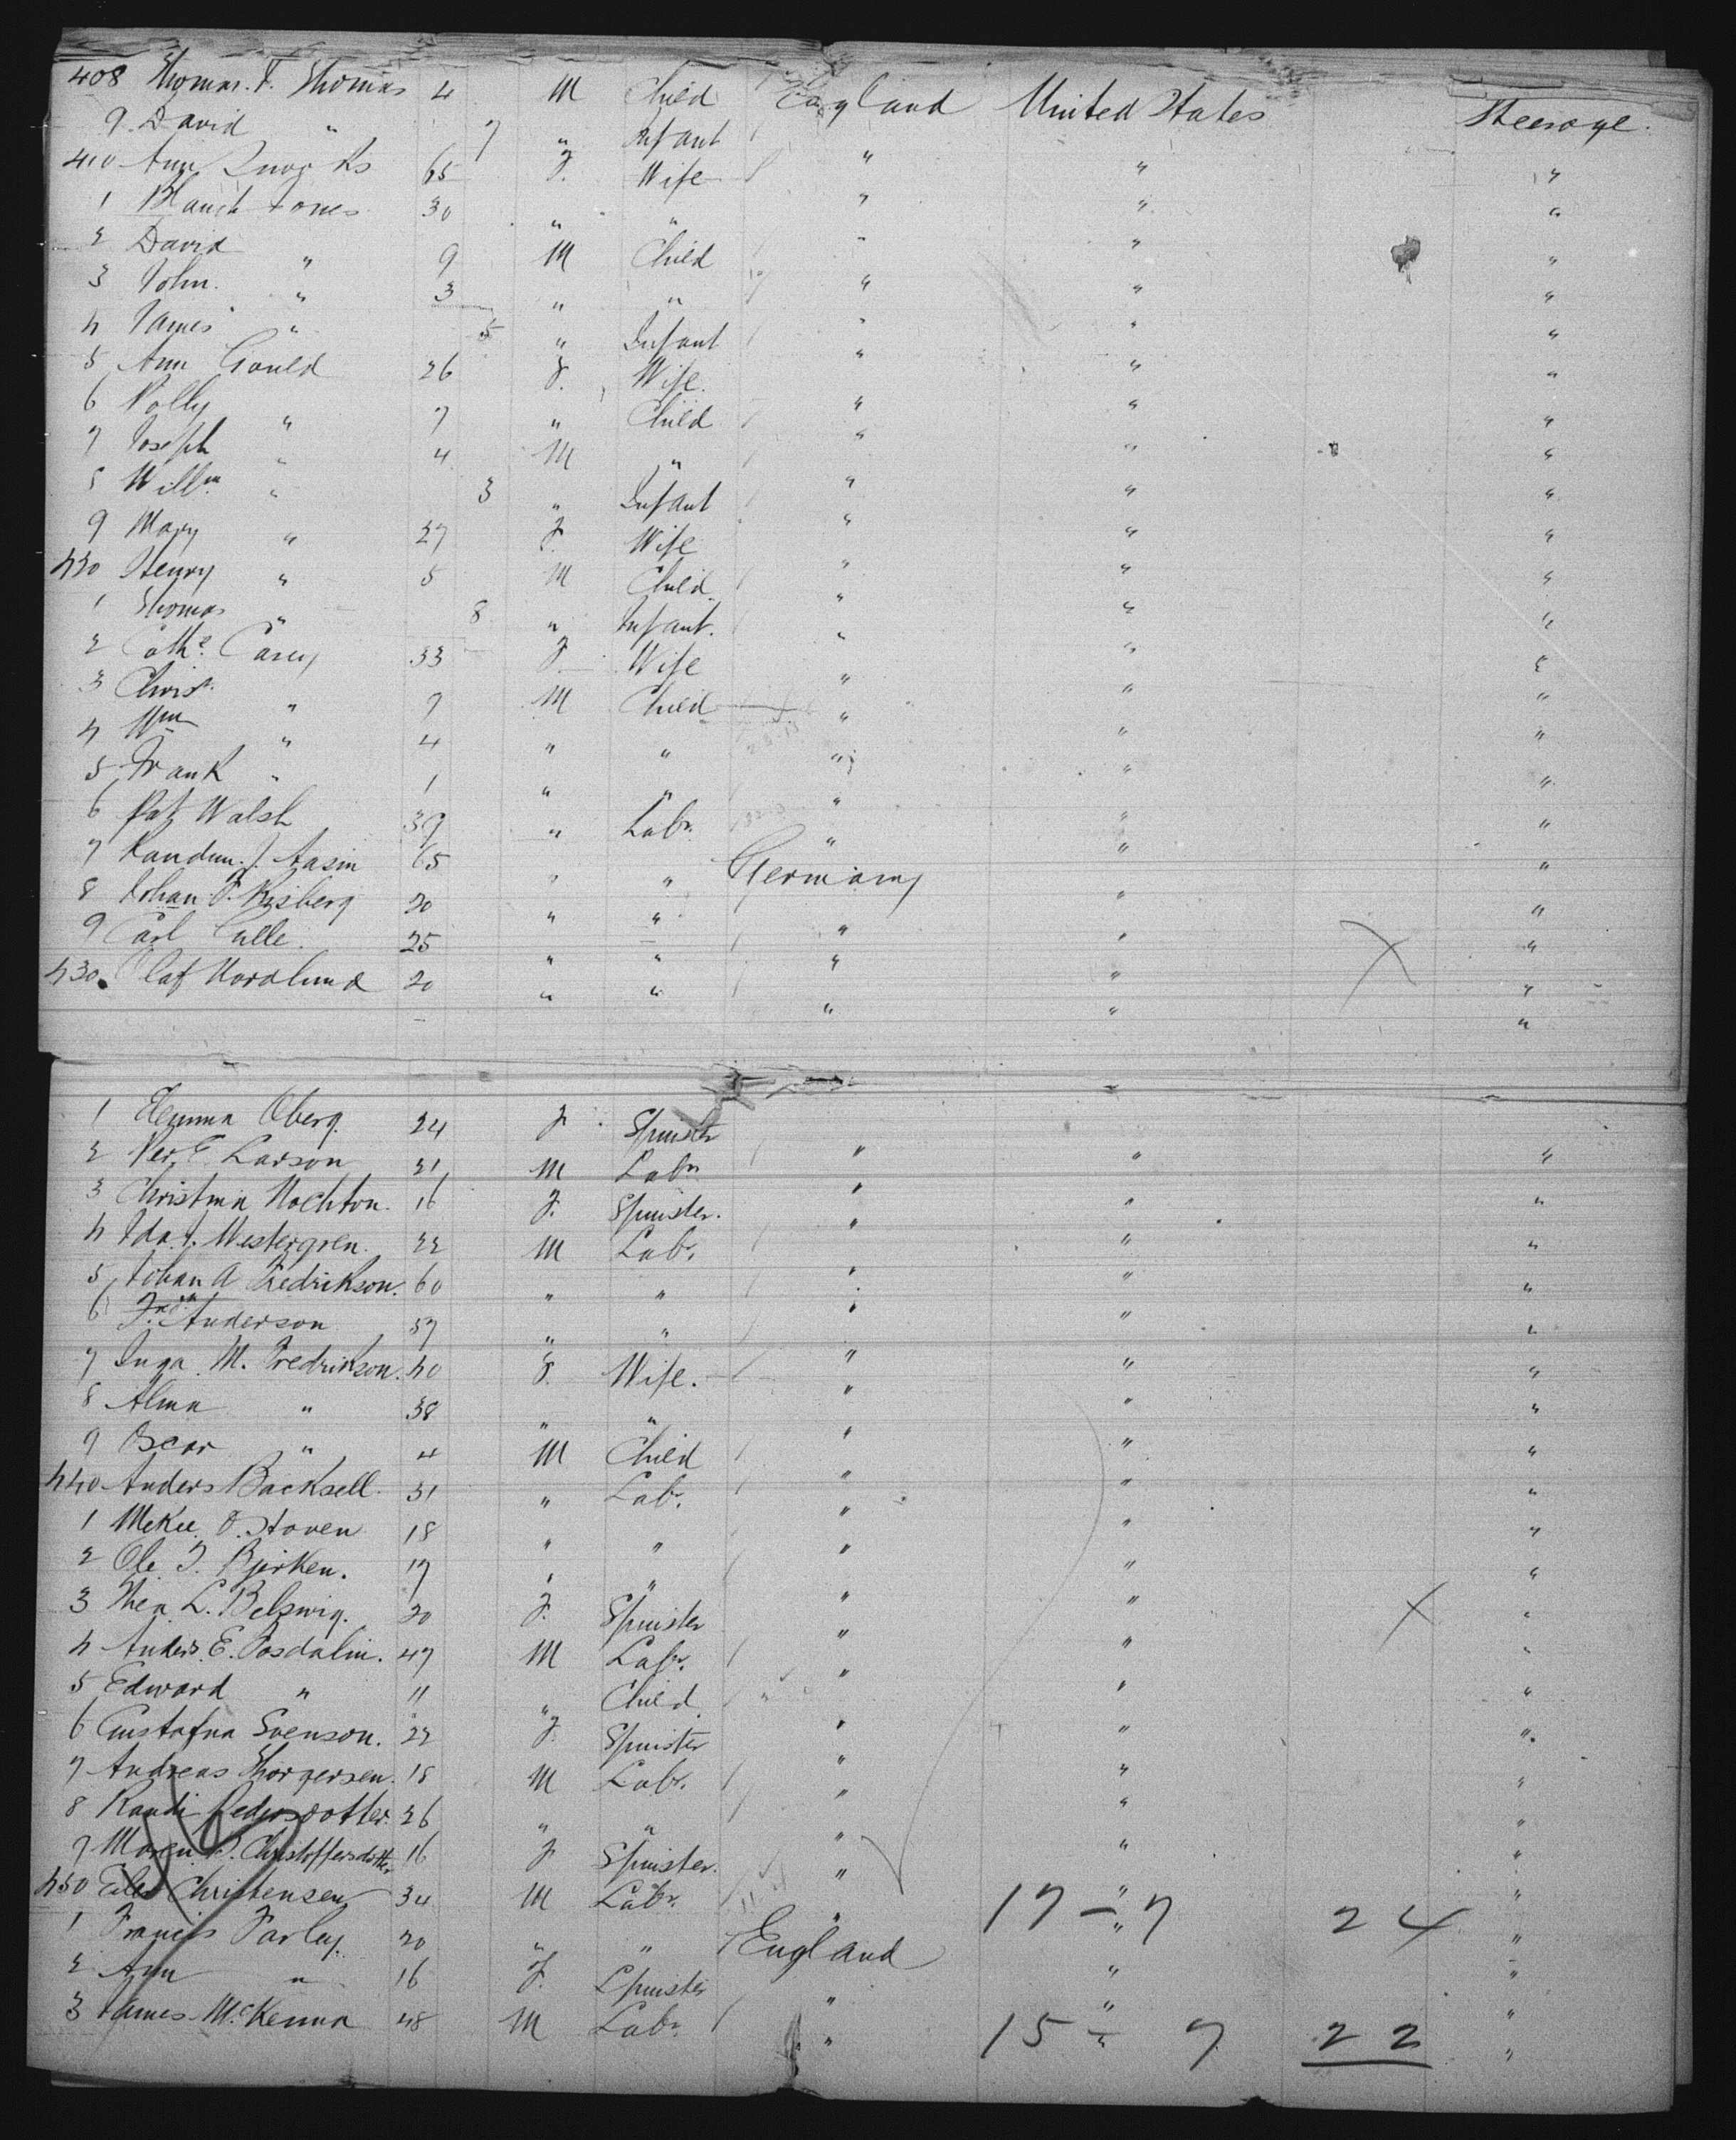 408 Thomas. F. Thomas 4 M Child England United States Steerage.
9 David " 7 " Infant " " "
410 Ann 65 F. Wife " " "
1 Blanch Jones 30 " " " " "
2 David " 9 M Child " " "
3 John. " 3 " " " " "
4 James " 5 " Infant " " "
5 Ann Gould 26 F. Wife. " " "
6 Polly " 7 " Child " " "
7 Joseph " 4 M " " " "
8 Willm " 3 " Infant " " "
9 Mary " 27 F. Wife " " "
420 Henry " 5 M Child. " " "
1 Thomas " 8 " Infant. " " "
2 Cathe. Casey 33 F Wife " " "
3 Christ. " 7 M Child " " "
4 Wm " 4 " " " " "
5 Frank " 1 " " " " "
6 Pat Walsh 39 " Labr. " " "
7 J. Aasin 65 " " Germany " "
8 Johan P. 20 " " " " "
9 Carl 25 " " " " "
430. Olaf Nordlund 20 " " " " "
1 Hemma Oberg. 24 F. Spinster " " "
2 Per E. Larson 21 M Labr " " "
3 Christina 16 F. Spinster. " " "
4 Ida J. Westergren. 22 M Labr. " " "
5 Johan A Fredrikson. 60 " " " " "
6 Anderson 57 " " " " "
7 Inga M. Fredrikson. 40 F. Wife. " " "
8 Alma " 38 " " " " "
9 Oscar " 4 M Child " " "
440 Anders Backsell. 31 " Labr. " " "
1 18 " " " " "
2 Ole J. Bjerken. 17 " " " " "
3 Thea L. 20 F. Spinster " " "
4 Anders. E. Posdalin. 47 M Labr. " " "
5 Edward " 11 " Child. " " "
6 Gustafna Svenson. 22 F. Spinster " " "
7 Andreas Thorgersen. 18 M Labr. " " "
8 Randi Pedersdotter. 26 " " " " "
9 Maren P. Christoffersdotter 16 F Spinster. " " "
450 Christensen 34 M Labr. " " 17 - 7 24 "
1 Francis Farley. 20 " " England " "
2 Ann " 16 F. Spinster " " "
3 James McKenna 48 M Labr. " " 15 - 7 22 "